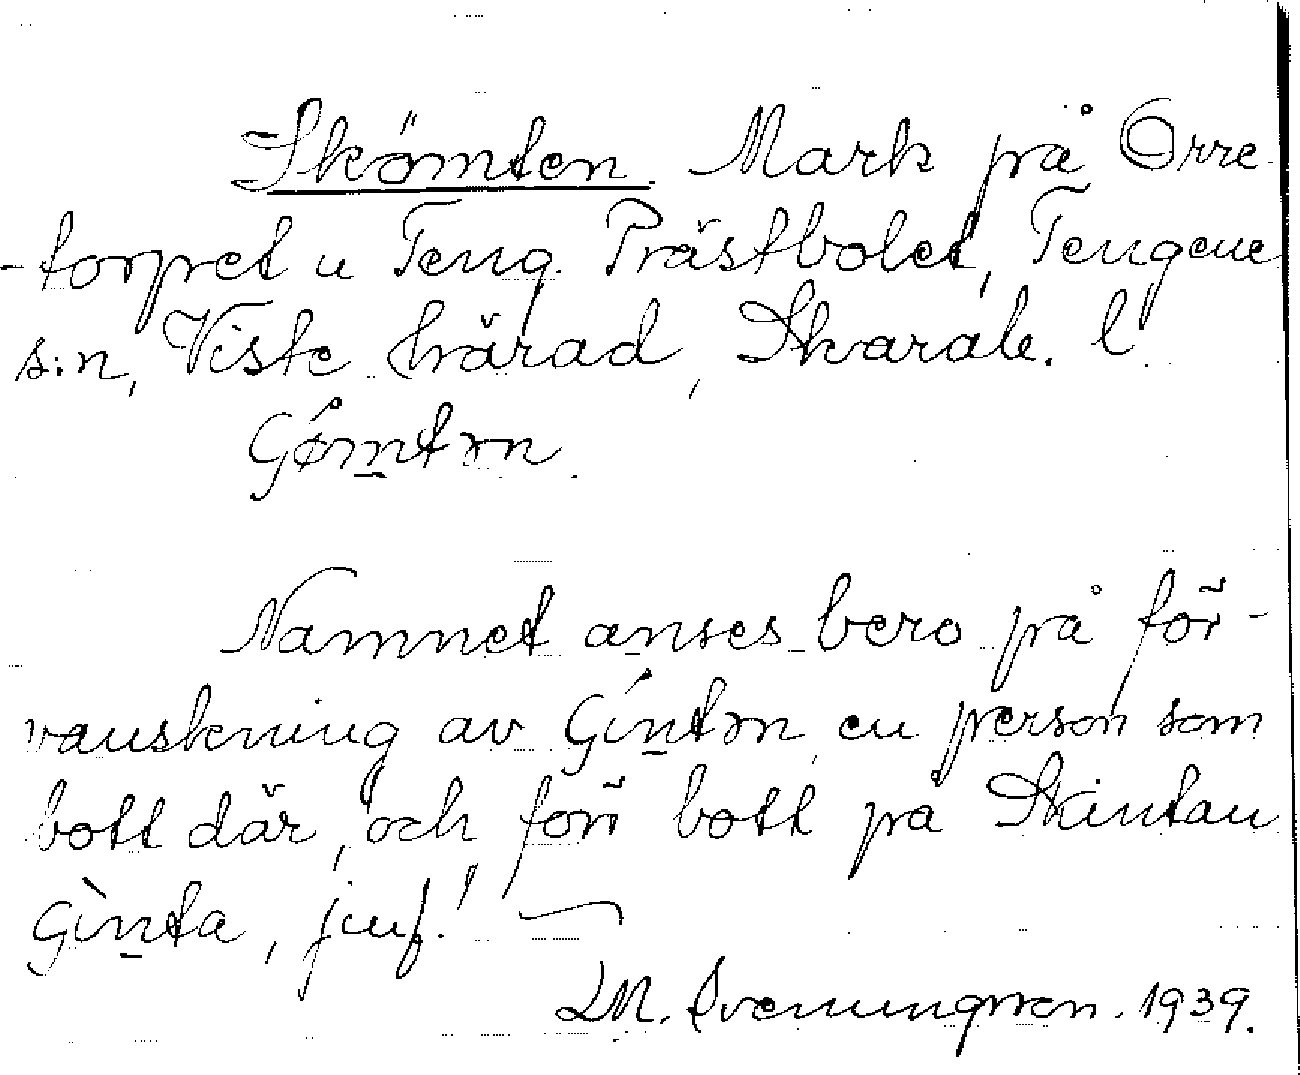 Skömten. Mark på Orre-
-torpet u Teng. Prästbolet, Tengene
s:n, Viste härad, Skarab. l.
Gǿmtən.
Namnet anses bero på för-
vanskning av Gíntən, en person som
bott där, och förr bott på Skintan
Gìnta, jmf.! —
LM. Svenungsson. 1939.